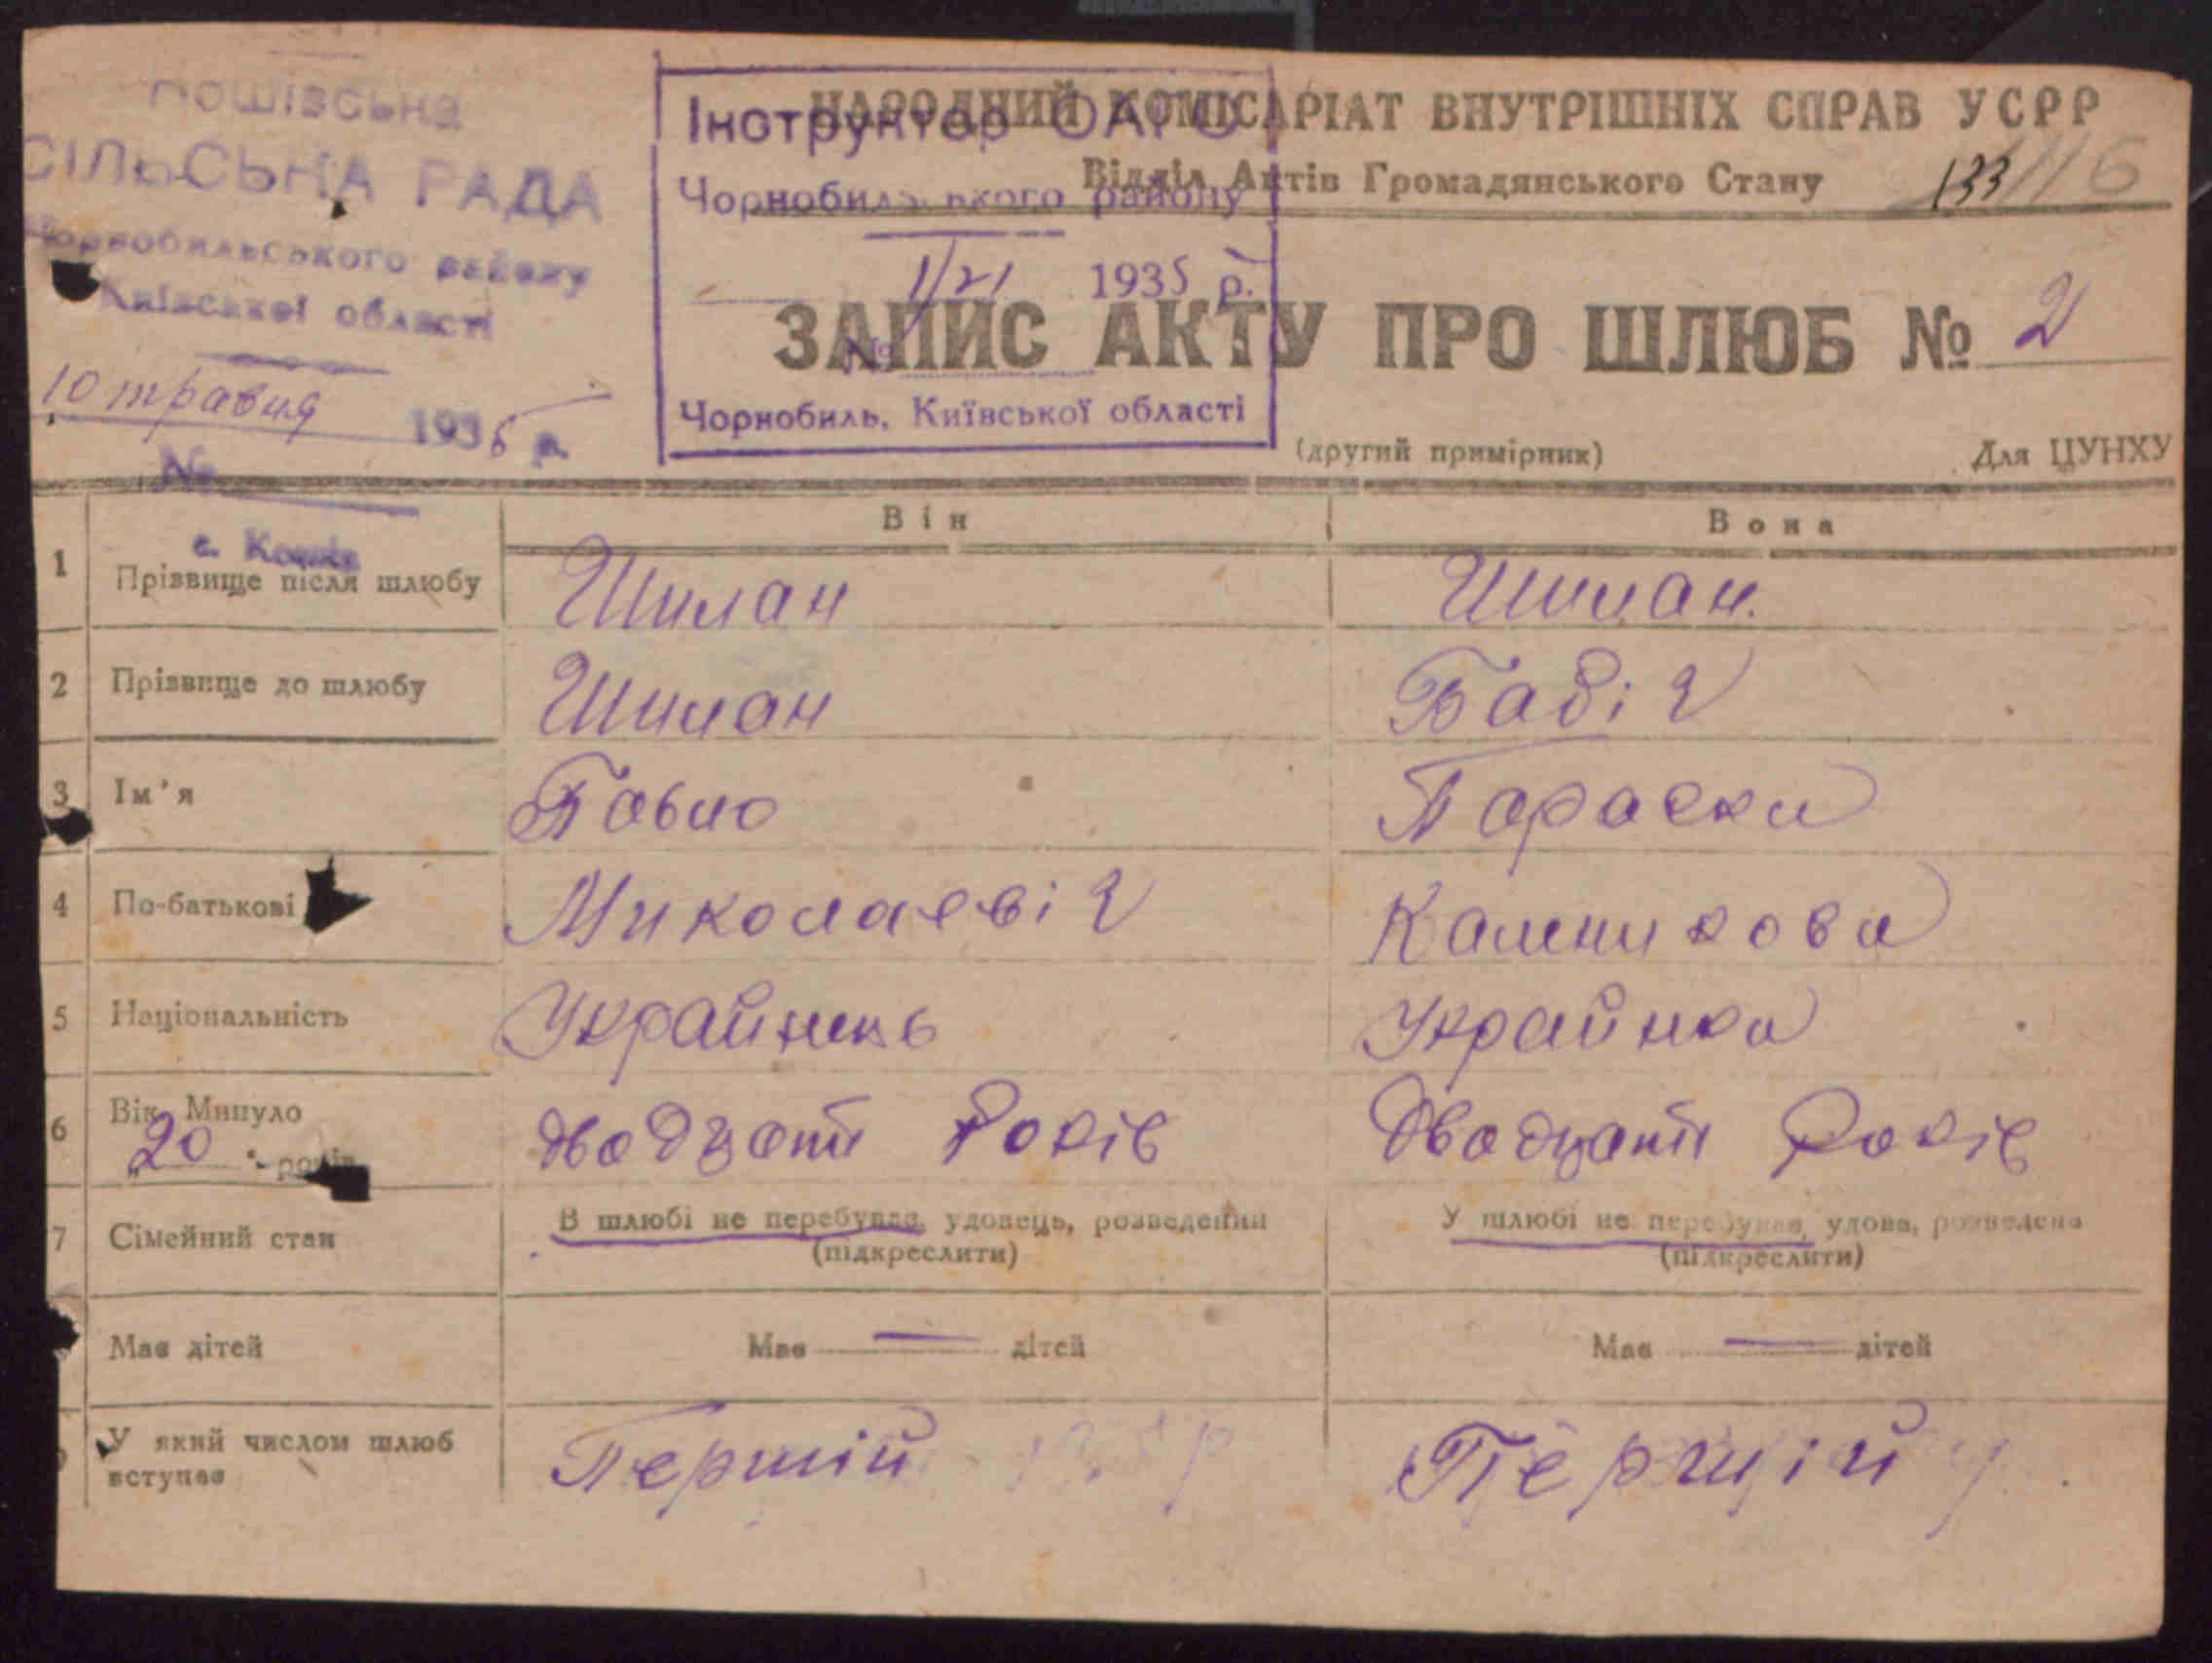 СІЛЬСЬКА РАДА
Чорнобильського району
Київської області
10 травня 1935 р.
№
Інструктор ОАГС
Чорнобильського району
1/21 1935 р.
№
Чорнобиль, Київської області
НАРОДНИЙ КОМІСАРІАТ ВНУТРІШНІХ СПРАВ УСРР
Відділ Актів Громадянського Стану
133 116
ЗАПИС АКТУ ПРО ШЛЮБ № 2
(другий примірник) Для ЦУНХУ
Він Вона
1 Прізвище після шлюбу Шилан Шилан.
2 Прізвище до шлюбу Шилан Бабіч
3 Ім'я Павло Параска
4 По-батькові Миколаєвіч
5 Національність Украйнець Украйнка
6 Вік. Минуло двадзати Років Двадцати Років
20 років
7 Сімейний стан В шлюбі не перебував, удовець, розведений У шлюбі не перебувала, удова, розведена
(підкреслити) (підкреслити)
Має дітей Має — дітей Має — дітей
У який числом шлюб
вступає Першій Першій